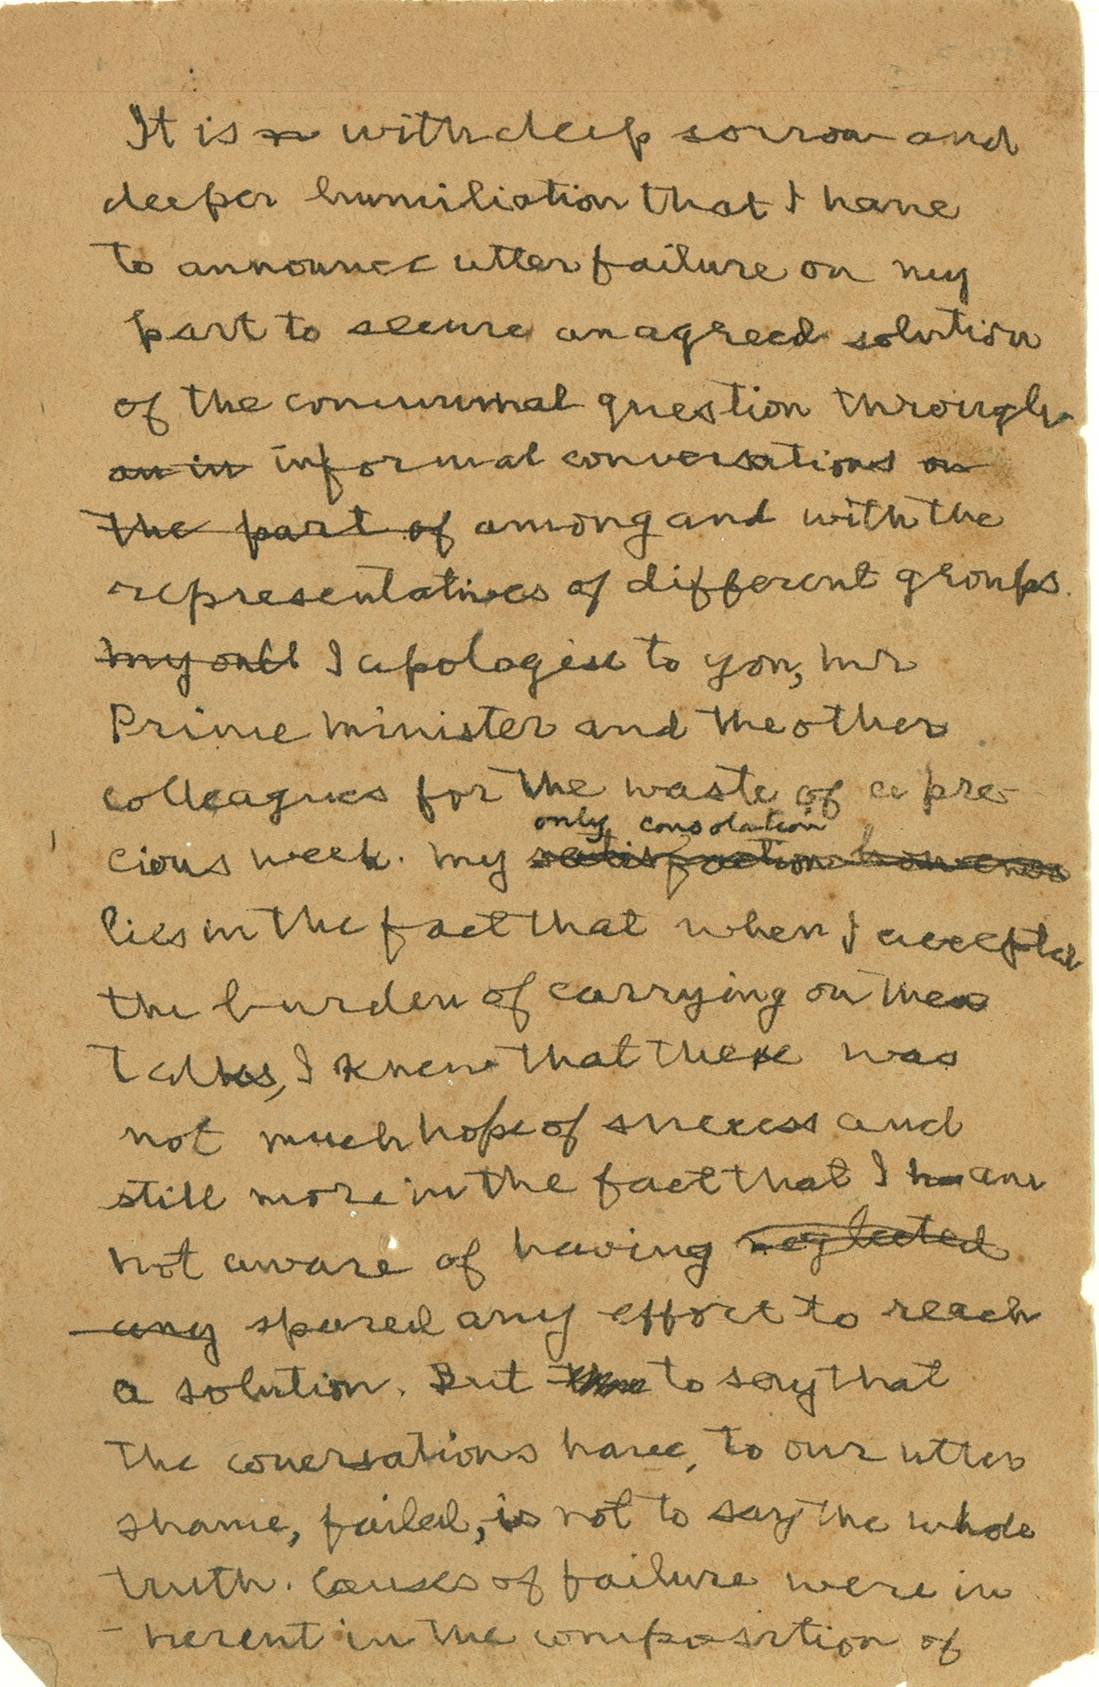 It is n with deep sorrow and
deeper humiliation that I have
to announce utter failure on my
part to secure an agreed solution
of the communal question through
an in informal conversations on
the part of among and with the
representatives of different groups.
my only I apologise to you, Mr
Prime Minister and the other
colleagues for the waste of a pre-
only consolation
cious week. My satisfaction however
lies in the fact that when I accepted
the burden of carrying on these
talks, I knew that there was
not much hope of success and
still more in the fact that I ha am
not aware of having neglected
any spared any effort to reach
a solution. But to say that
the conersations have, to our utter
shame, failed, is not to say the whole
truth. Causes of failure were in
-herent in the composition of